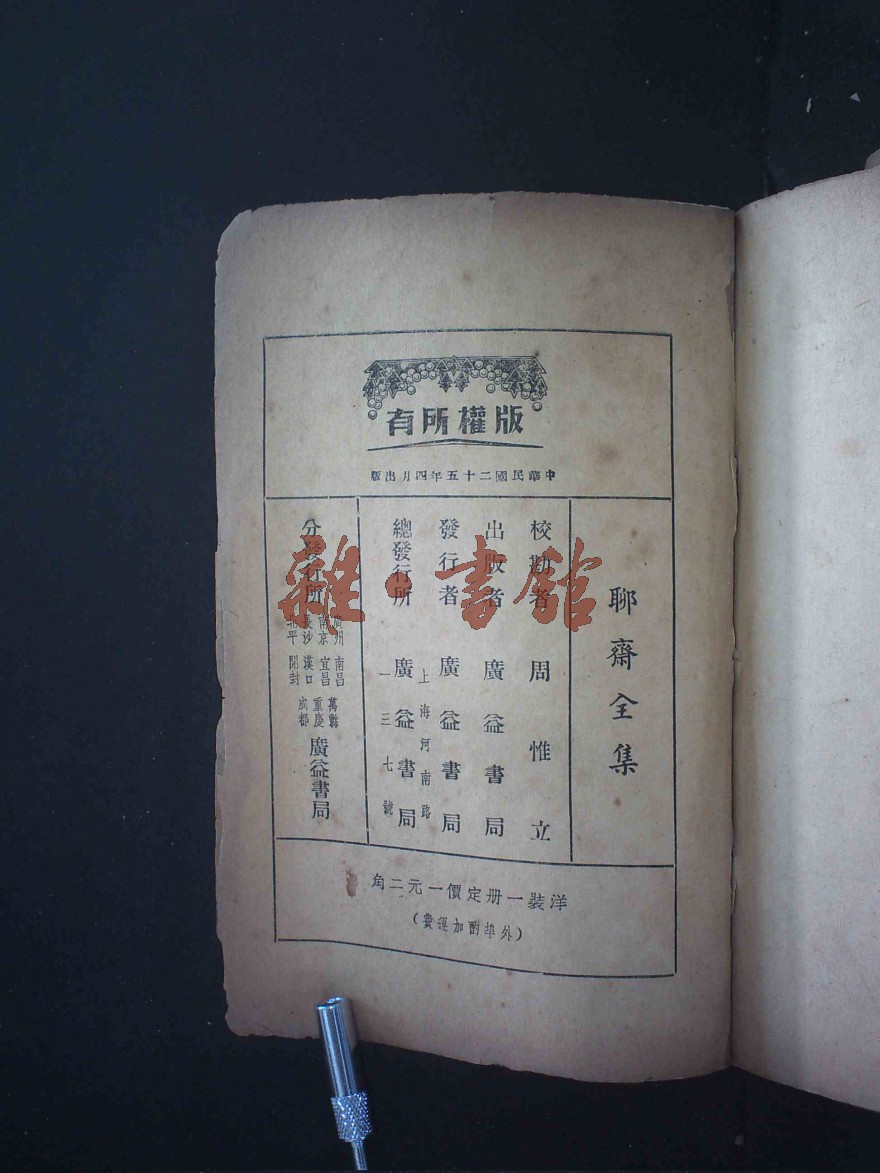 版權所有
中華民國二十五年四月出版
聊齋全集
校勘者 周惟立
出版者 廣益書局
發行者 廣益書局
上海河南路
總發行所 廣益書局
一三七號
分發行所
廣州 南昌 萬縣
南京 宜昌 重慶
長沙 漢口 成都
北平 開封
廣益書局
洋裝一册定價一元二角
(外埠酌加運費)
雜·書館